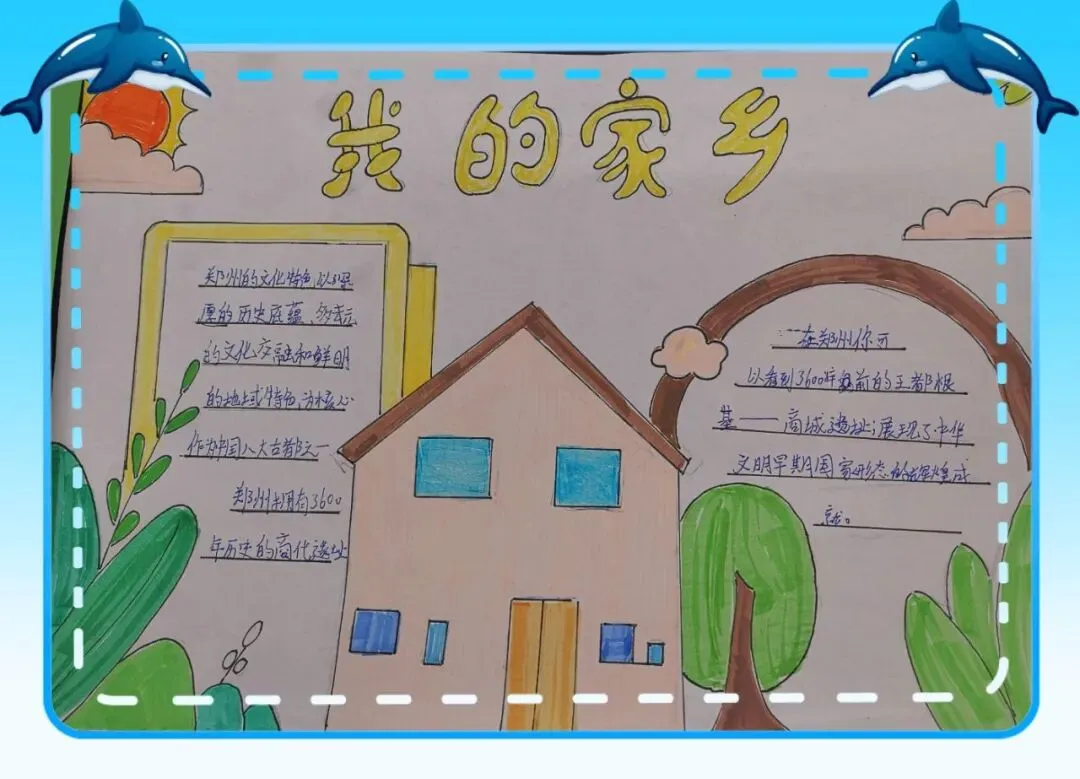 我的家乡
郑州的文化特色,以深
厚的历史底蕴、多元
的文化交融和鲜明
的地域特色为核心
作为中国八大古都之一
郑州拥有3600
年历史的商代遗址
在郑州你可
以看到3600年前的王都根
基——商城遗址;展现了中华
文明早期国家形态的辉煌成
就。